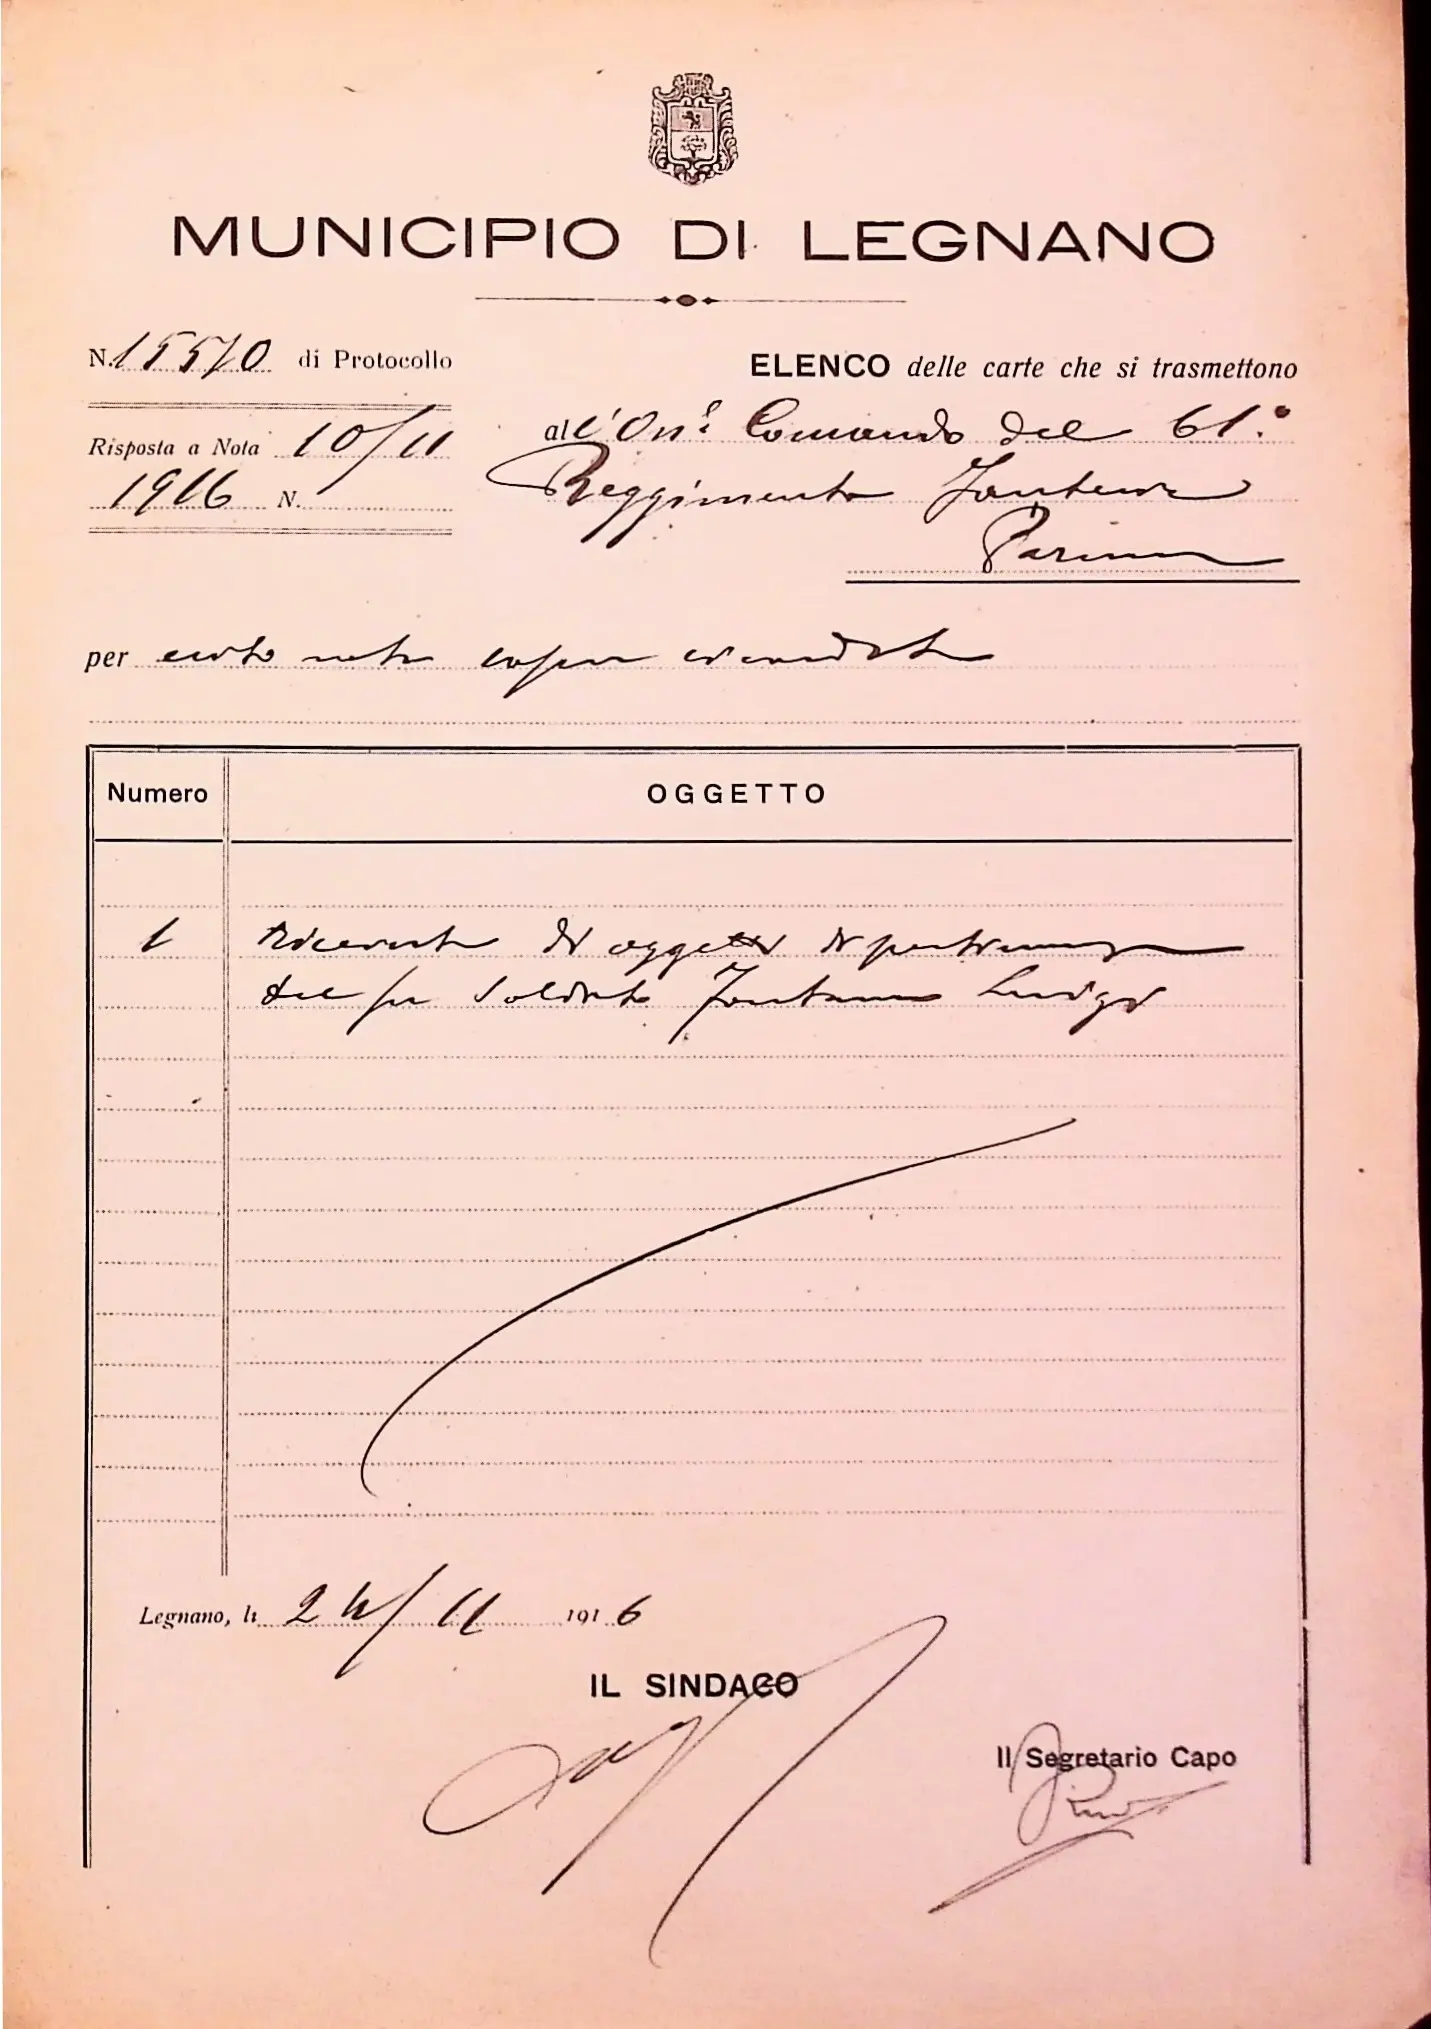 MUNICIPIO DI LEGNANO
N. 15570 di Protocollo
ELENCO delle carte che si trasmettono
Risposta a Nota 10/11
1916 N.
all'On.e Comando del 61.°
Reggimento Fanteria
Parma
per
Numero OGGETTO
1 Ricevuta di oggetti di
del fu Soldato Fontana Luigi
Legnano, li 24/11 1916
IL SINDACO
Il Segretario Capo